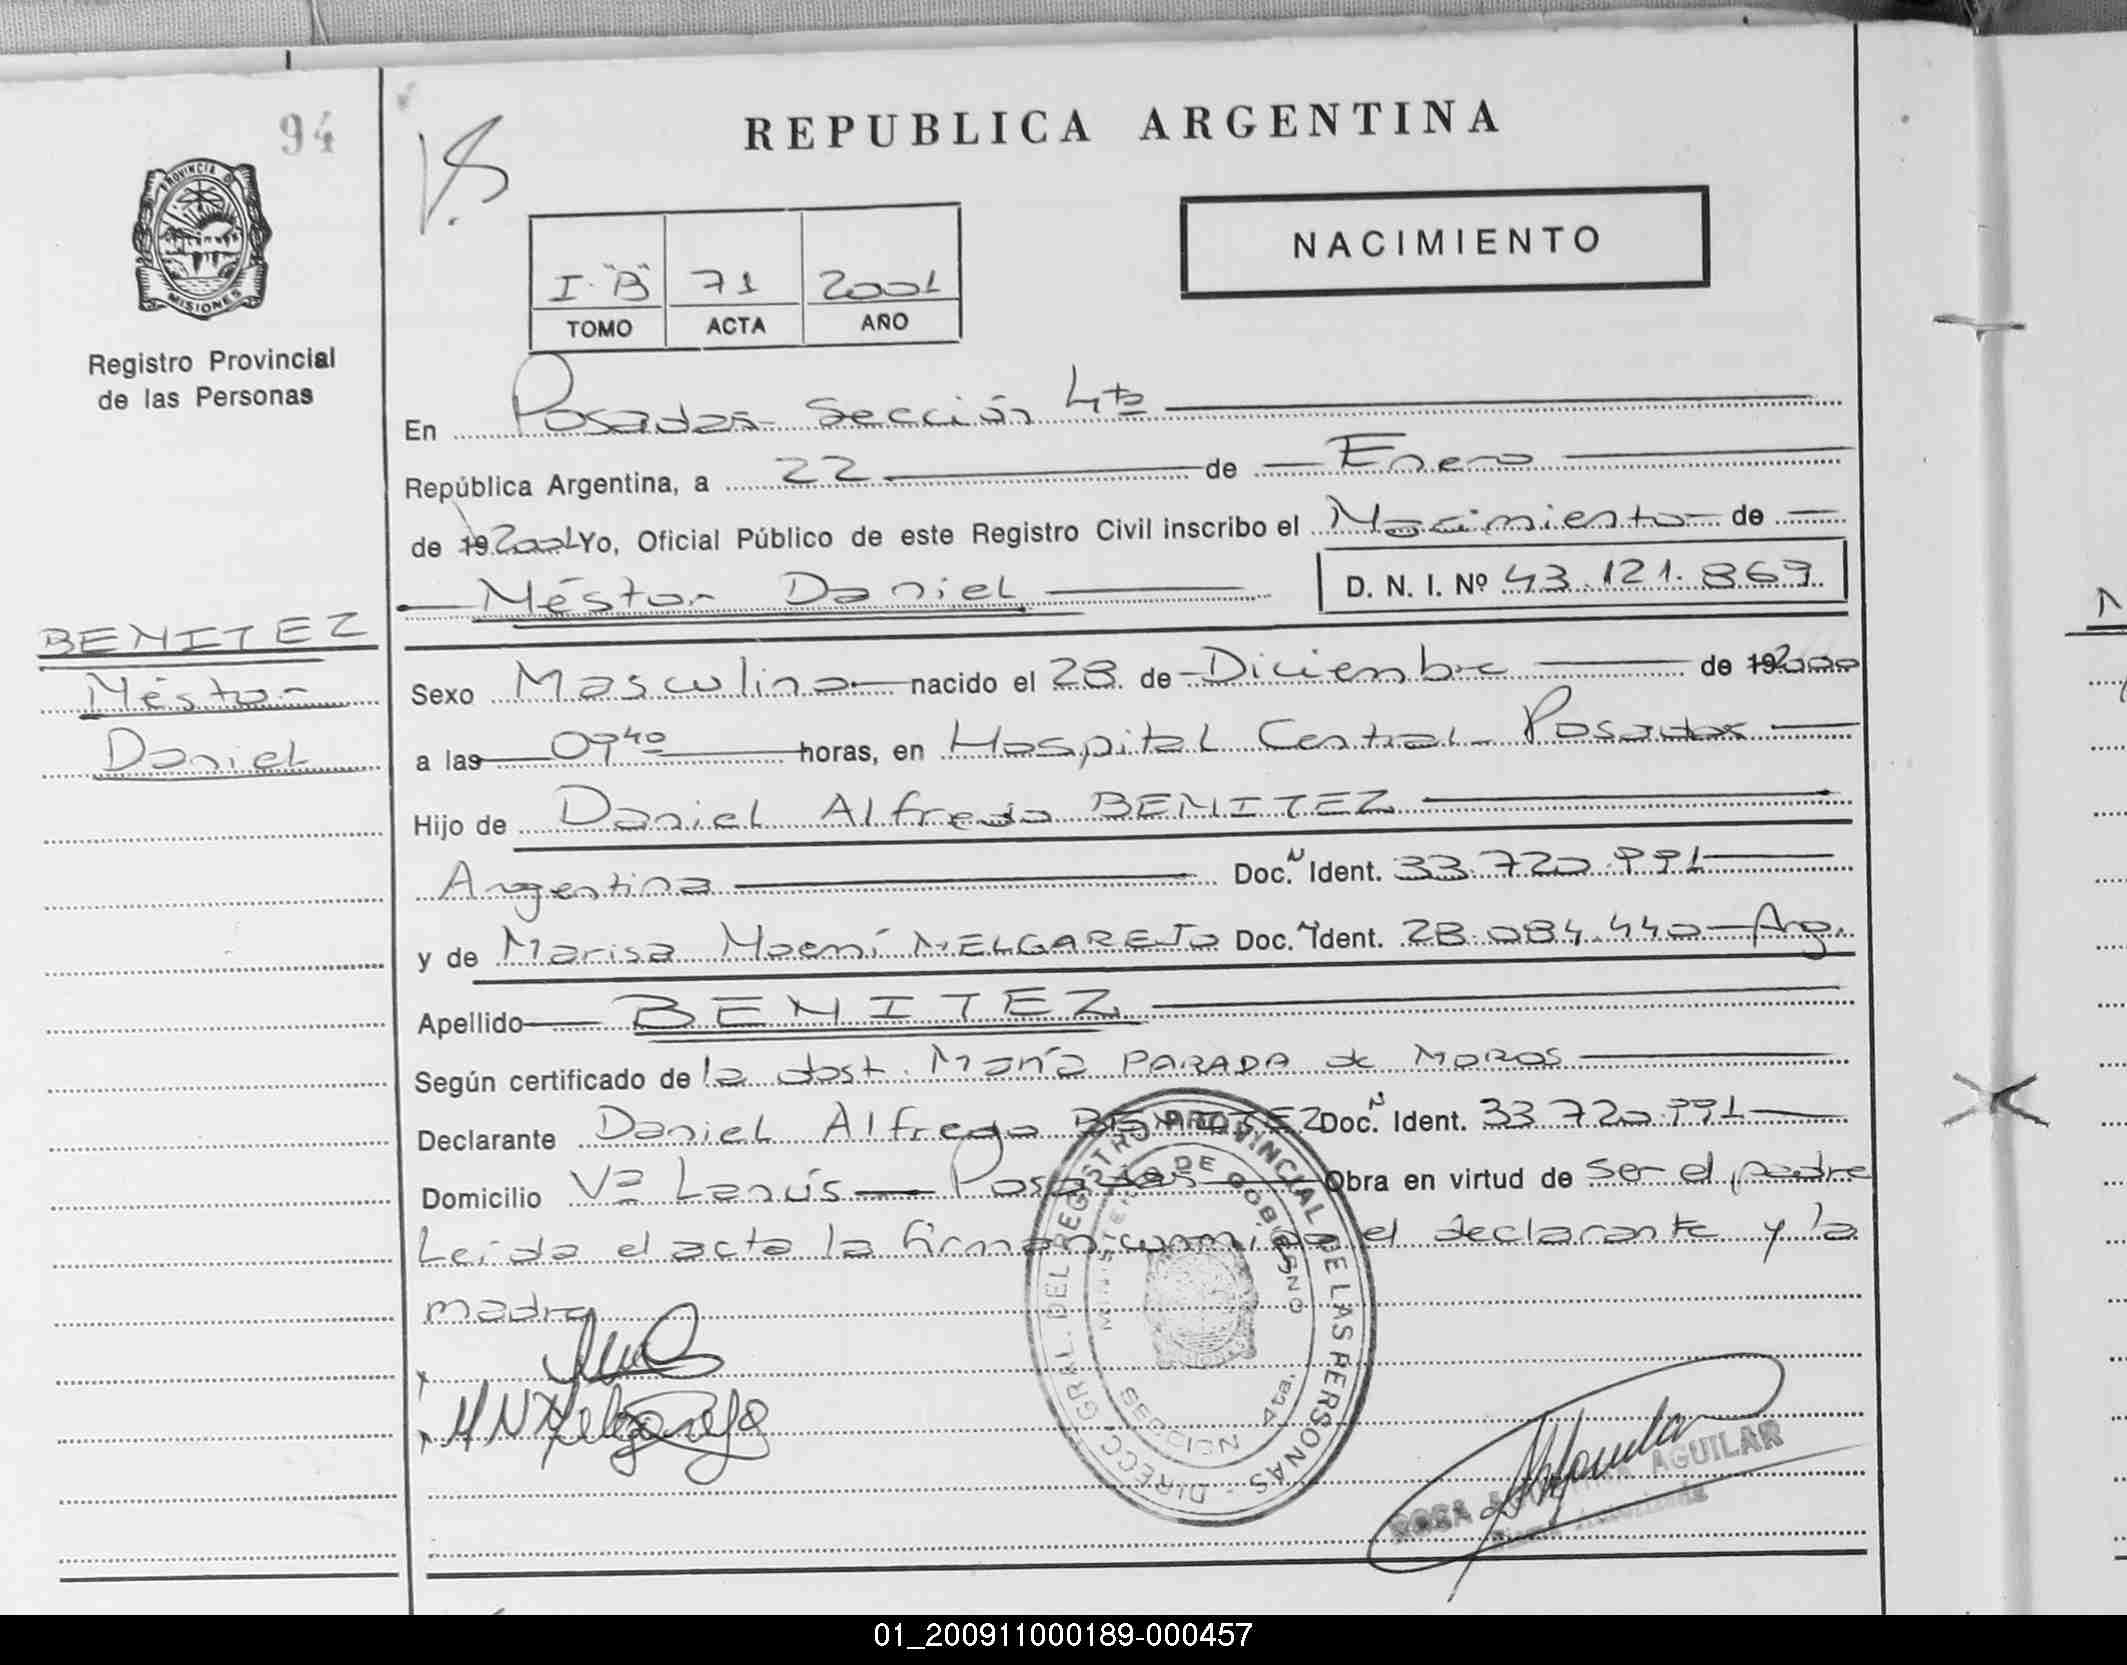 94
REPUBLICA ARGENTINA
PROVINCIA D
MISIONES
NACIMIENTO
I-"B" 71 2001
TOMO ACTA AÑO
Registro Provincial
de las Personas
En Posadas- Sección 4ta
República Argentina, a 22 de Enero
de 19 2001 Yo, Oficial Público de este Registro Civil inscribo el Nacimiento de
Néstor Daniel D. N. I. Nº 43.121.869
BENITEZ
Néstor
Daniel
Sexo Masculino nacido el 28 de Diciembre de 19 2000
a las 09 40 horas, en Hospital Central- Posadas
Hijo de Daniel Alfredo BENITEZ
Argentina Doc. N Ident. 33.720.991
y de Marisa Noemí MELGAREJO Doc. N Ident. 28.084.440 - Arg.
Apellido BENITEZ
Según certificado de la obst. María PARADA de MOROS
Declarante Daniel Alfredo BENITEZ Doc. N Ident. 33.720.991
Domicilio Va Lanús - Posadas Obra en virtud de ser el padre
Leída el acta la firman conmigo el declarante y la
madre
M N Melgarejo
DIRECC. GRAL. DEL REGISTRO PROVINCIAL DE LAS PERSONAS
MINISTERIO DE GOBIERNO
SECCION 4ta.
ROSA AGUILAR
01_200911000189-000457